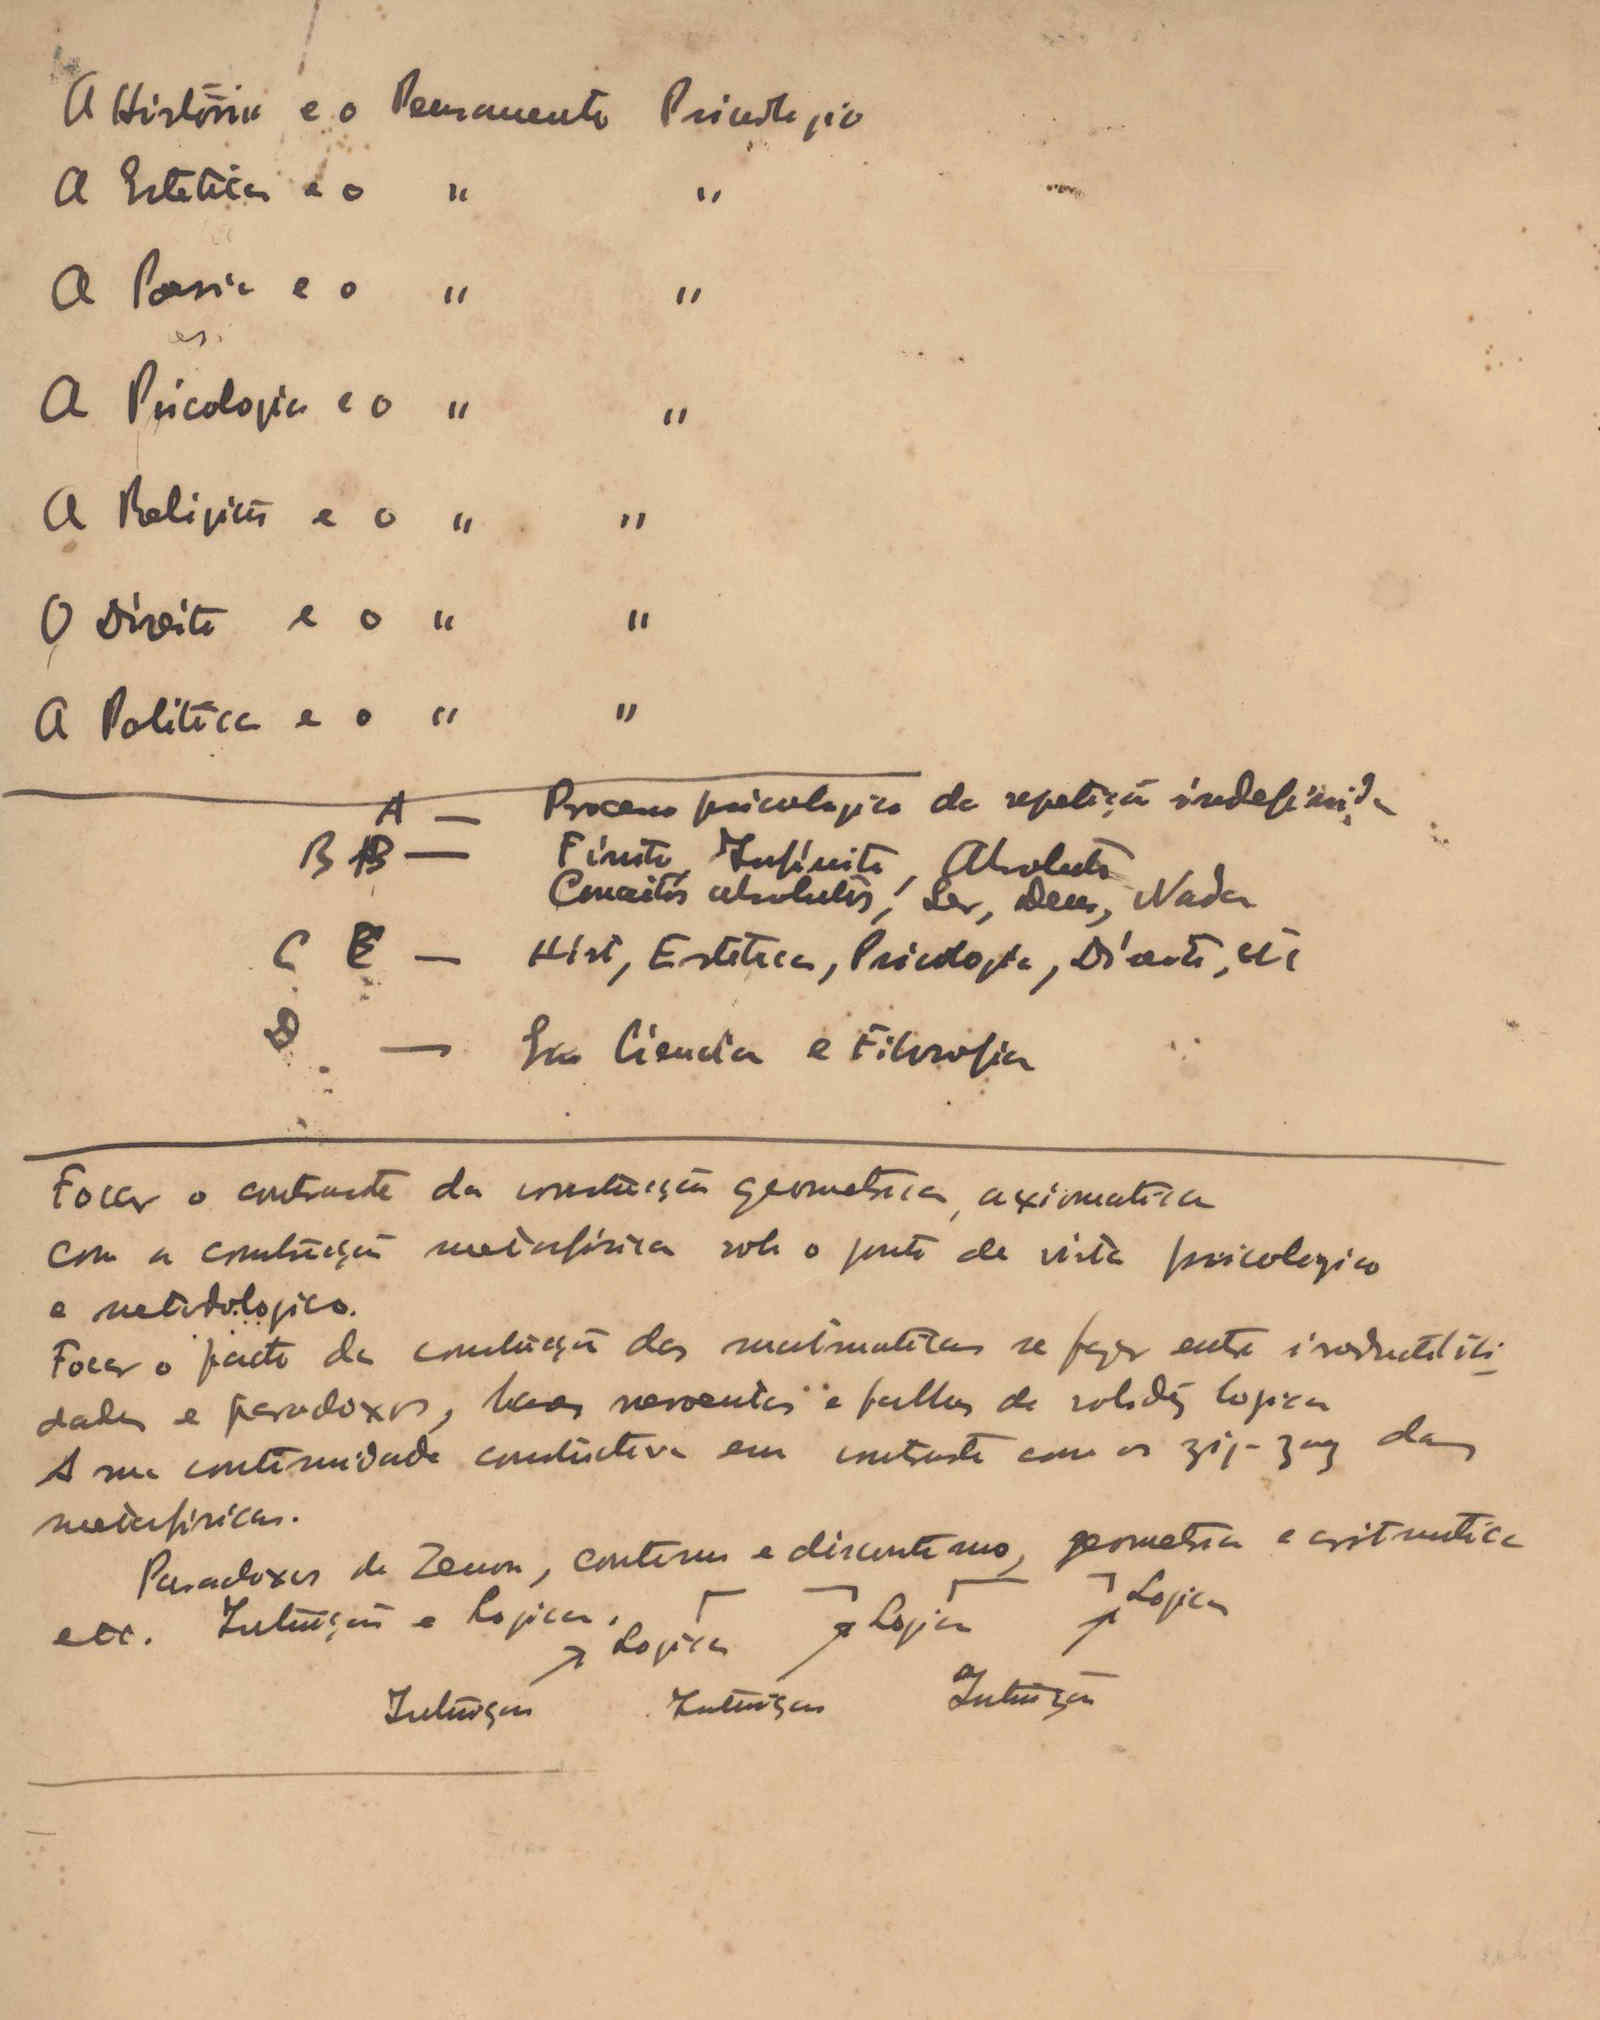 A História e o Pensamento Psicologico
A Estetica e o " "
A Poesia e o " "
A Psicologia e o " "
A Religião e o " "
O Direito e o " "
A Politica e o " "
A — Processo psicologico da repetição indefinida
B B — Finito, Infinito, Absoluto
Conceitos absolutos, Ser, Deus, Nada
C C — Hist, Estetica, Psicologia, Direito, etc
D — Ciencia e Filosofia
Focar o contraste da construção geometrica, axiomatica
com a construção metafisica sob o ponto de vista psicologico
e metodologico.
Focar o facto da construção das matematicas se fazer entre
dades e paradoxos, e falhas de solidez logica
A sua continuidade constructiva em contraste com os zig-zag das
metafisicas.
Paradoxos de Zenon, continuo e discontinuo, geometria e aritmetica
etc. Intuição e Logica.
Logica Logica Logica
Intuiçao Intuiçao Intuição